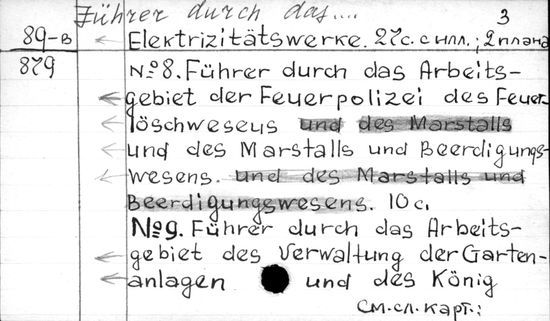 Führer durch das....
3
89-в Elektrizitätswerke. 27с. с илл.; 2 плана
879 №8. Führer durch das Arbeits-
gebiet der Feuerpolizei des Feuer-
löschwesens und des Marstalls
und des Marstalls und Beerdigungs-
wesens. und des Marstalls und
Beerdigungswesens. 10 с.
№9. Führer durch das Arbeits-
gebiet des Verwaltung der Garten-
anlagen und des König
См. сл. карт.: